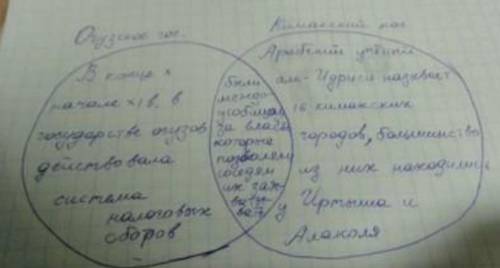 Огузское гос.
Кимакский гос
В конце х
начале xi в, в
государстве огузов
действовала
система
налоговых
сборов
были
между-
усобицы
за власть
которые
позволяли
соседям
их зах-
ваты-
вать
Арабский учёный
аль-Идриси называет
16 кимакских
городов, большинство
из них находились
у Иртыша и
Алаколя